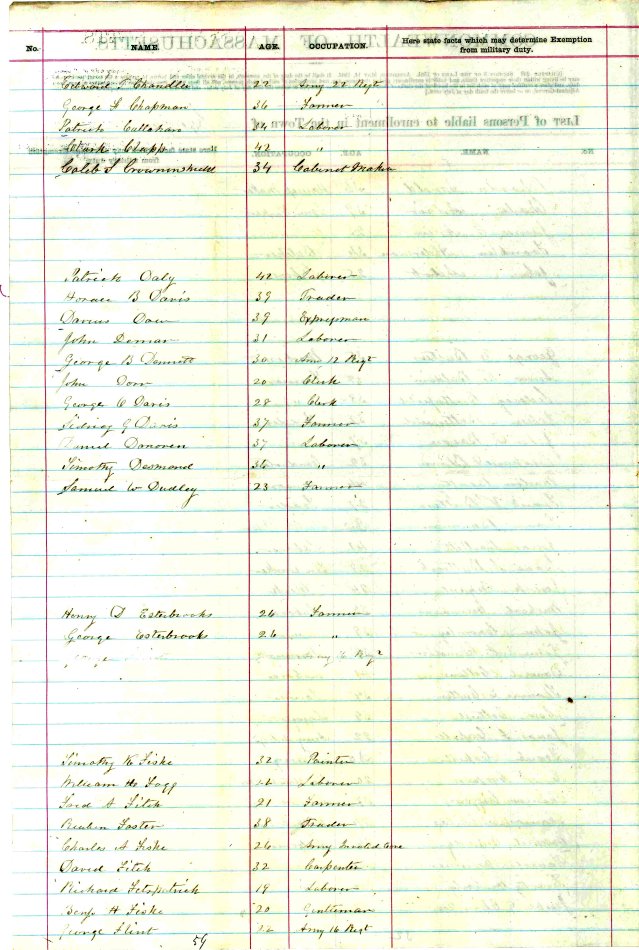 No. NAME. AGE. OCCUPATION. Here state facts which may determine Exemption from military duty.
Edward T Chandler 22 Army 20 Regt
George L Chapman 36 Farmer
Patrick Callahan 34 Laborer
Clark Clapp 42 "
Caleb S Crowninshield 34 Cabinet Maker
Patrick Daly 42 Laborer
Horace B Davis 39 Trader
Darius Dow 39 Expressman
John Deman 31 Laborer
George B Dennett 30 Army 12 Regt
John Dorr 20 Clerk
George C Davis 28 Clerk
Sidney G Davis 37 Farmer
Daniel Donoven 37 Laborer
Timothy Desmond 36 "
Samuel W Dudley 23 Farmer
Henry D Esterbrooks 26 Farmer
George Esterbrooks 26 "
Regt
Timothy H Fiske 32 Painter
William H Fogg Laborer
A Fitch 21 Farmer
Reuben Foster 38 Trader
Charles A Fiske 26 Army Invalid
David Fitch 32 Carpenter
Richard Fitzpatrick 19 Laborer
Benj H Fiske 20 Gentleman
George Flint 22 Army 16 Regt
54